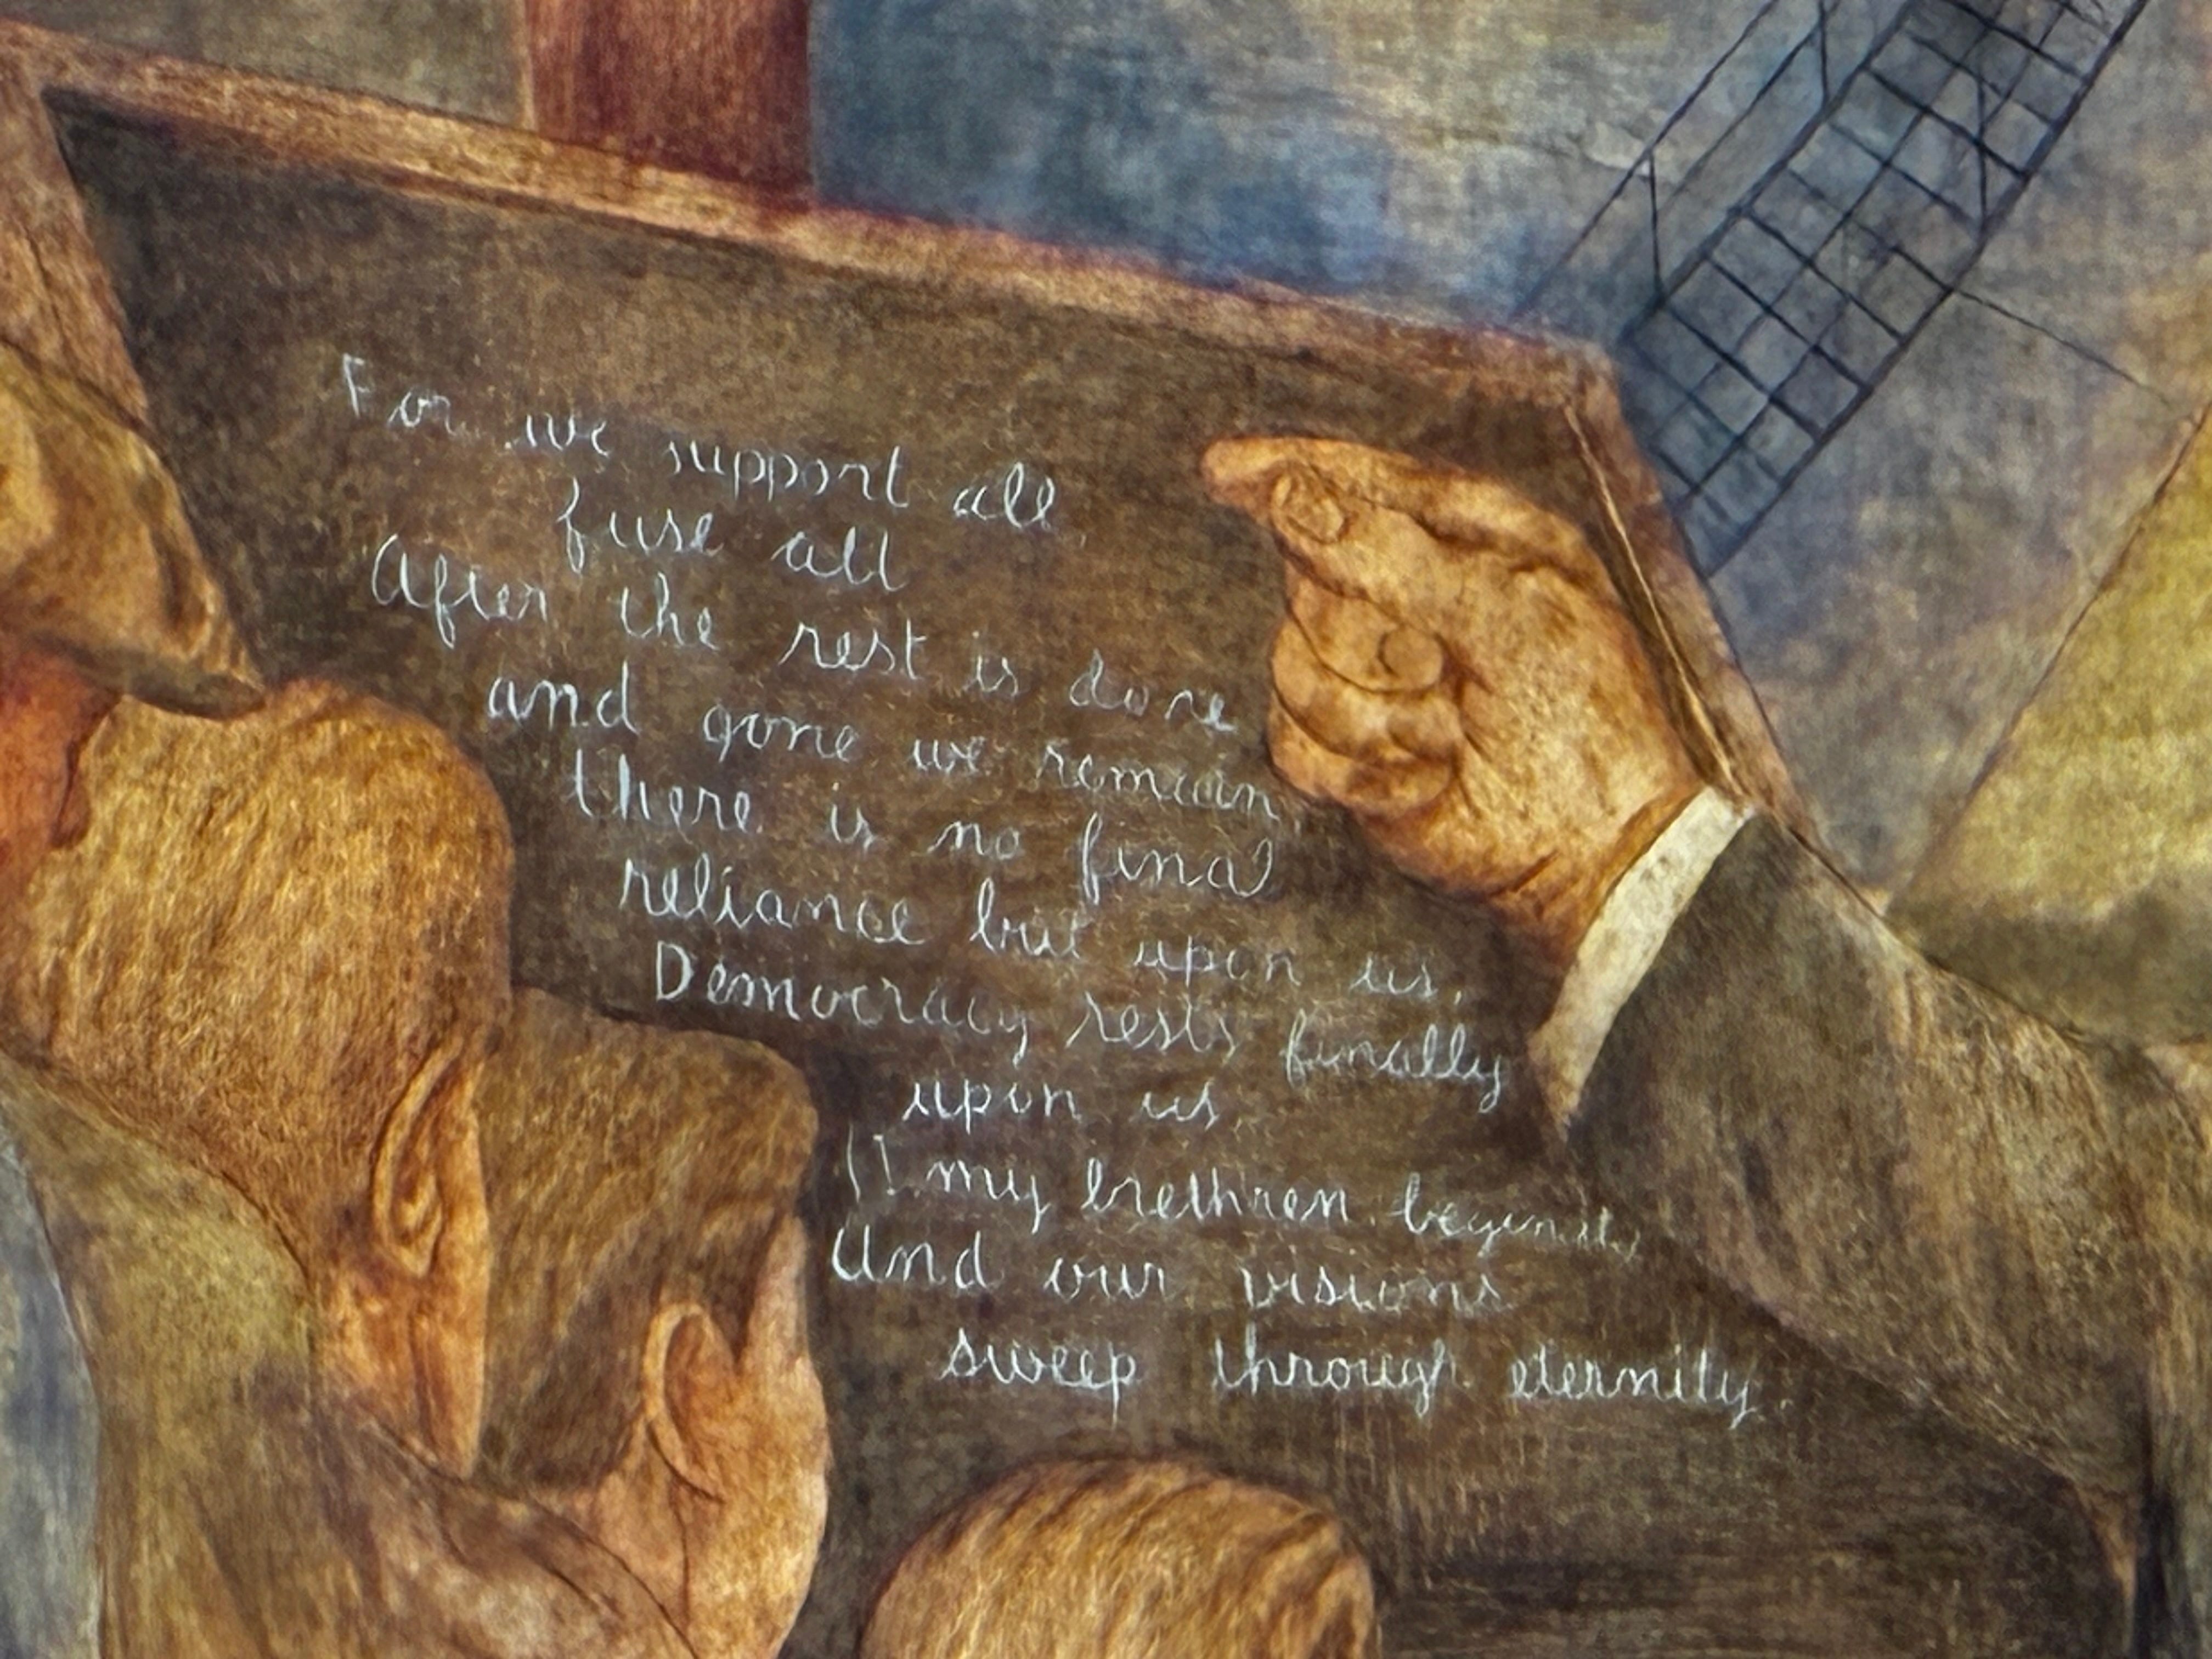 For we support all
fuse all
After the rest is done
and gone we remain,
there is no final
reliance but upon us,
Democracy rests finally
upon us
my brethren begin
And our visions
sweep through eternity.